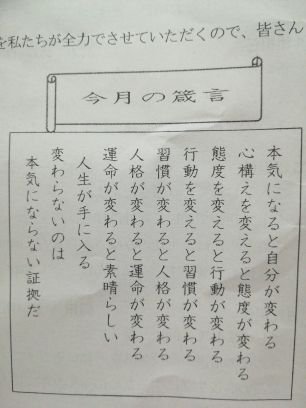 を私たちが全力でさせていただくので、皆さん
今月の箴言
本気になると自分が変わる
心構えを変えると態度が変わる
態度を変えると行動が変わる
行動を変えると習慣が変わる
習慣が変わると人格が変わる
人格が変わると運命が変わる
運命が変わると素晴らしい
人生が手に入る
変わらないのは
本気にならない証拠だ